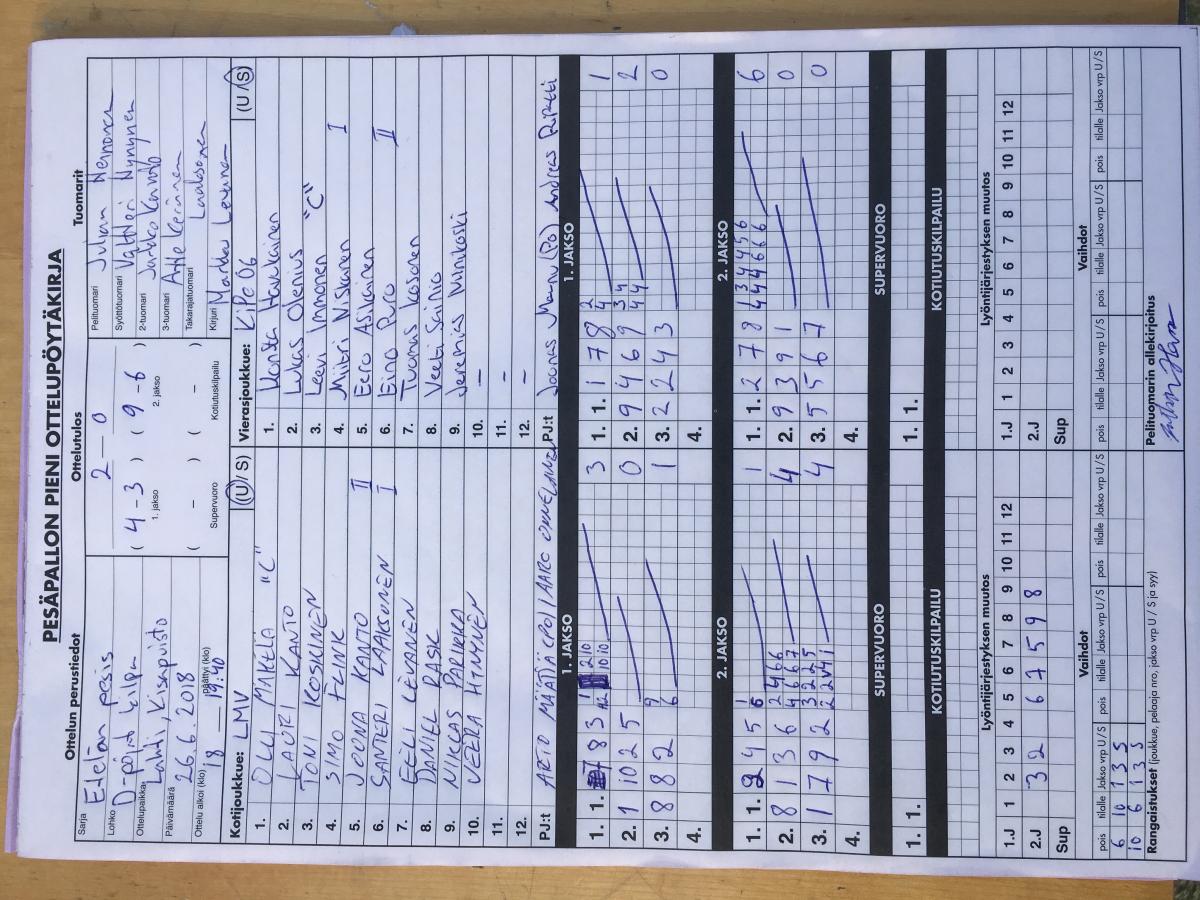 PESÄPALLON PIENI OTTELUPÖYTÄKIRJA
Ottelun perustiedot
Sarja Etelän pesis
Lohko D-pojat
Ottelupaikka Lahti, Kisapuisto
Päivämäärä 26.6.2018
Ottelu alkoi (klo) 18 päättyi (klo) 19:40
Ottelutulos
2 – 0
( 4 – 3 ) ( 9 – 6 )
1. jakso 2. jakso
( – ) ( – )
Supervuoro Kotiutuskilpailu
Tuomarit
Pelituomari Julian
Syöttötuomari Valtteri Nynynen
2-tuomari Jarkko
3-tuomari Atte Keränen
Takarajatuomari Laaksonen
Kirjuri Markku
Kotijoukkue: LMV (U / S)
1. OLLI MÄKELÄ "C"
2. LAURI KANTO
3. TONI KOSKINEN
4. SIMO FLINK
5. JOONA KANTO II
6. SANTERI LAAKSONEN I
7. EELI LEVÄNEN
8. DANIEL RASK
9. NIKLAS PARIKKA
10. VEERA HYNYNEN
11.
12.
PJ:t ARTO MÄÄTTÄ (PJ) / AARO
Vierasjoukkue: KiPe 06 (U / S)
1. Konsta Haukkainen
2. Lukas Olenius
3. Leevi Immonen "C"
4. Miitri Niskanen I
5. Eero Asikainen
6. Eino Puro II
7. Tuomas Kosonen
8. Veeti Sainio
9. Jeremias Minkoski
10. –
11. –
12. –
PJ:t Joonas (PJ) Andreas
1. JAKSO
1. 1. 8 3 3
2. 1 10 2 5 0
3. 8 8 2 6 1
4.
1. JAKSO
1. 1. 1 7 8 2 4 1
2. 9 4 6 9 3 4 4 4 2
3. 2 2 4 3 0
4.
2. JAKSO
1. 1. 2 4 5 1 6 1
2. 8 1 3 6 2 4 6 6 4 6 6 7 4
3. 1 7 9 2 3 2 2 5 2 2 4 1 4
4.
2. JAKSO
1. 1. 2 7 8 1 3 4 4 5 6 4 4 4 6 6 6 6
2. 9 3 9 1 0
3. 5 5 6 7 0
4.
SUPERVUORO
1. 1.
SUPERVUORO
1. 1.
KOTIUTUSKILPAILU
KOTIUTUSKILPAILU
Lyöntijärjestyksen muutos
1.J 1 2 3 4 5 6 7 8 9 10 11 12
2.J 3 2 6 7 5 9 8
Sup
Lyöntijärjestyksen muutos
1.J 1 2 3 4 5 6 7 8 9 10 11 12
2.J
Sup
Vaihdot
pois tilalle Jakso vrp U / S pois tilalle Jakso vrp U / S pois tilalle Jakso vrp U / S
6 10 1 3 S
10 6 1 3 S
Vaihdot
pois tilalle Jakso vrp U / S pois tilalle Jakso vrp U / S pois tilalle Jakso vrp U / S
Rangaistukset (joukkue, pelaaja nro, jakso vrp U / S ja syy)
Pelituomarin allekirjoitus